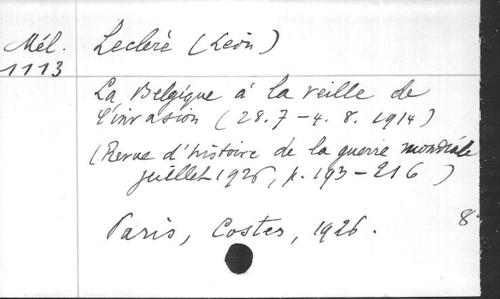 Mél. Lecleré (Léon)
1113
La Belgique à la veille de
l'invasion (28.7 - 4. 8. 1914)
(Revue d'histoire de la guerre mondiale
juillet 1926, p. 193-216)
Paris, Costes, 1926. 8°